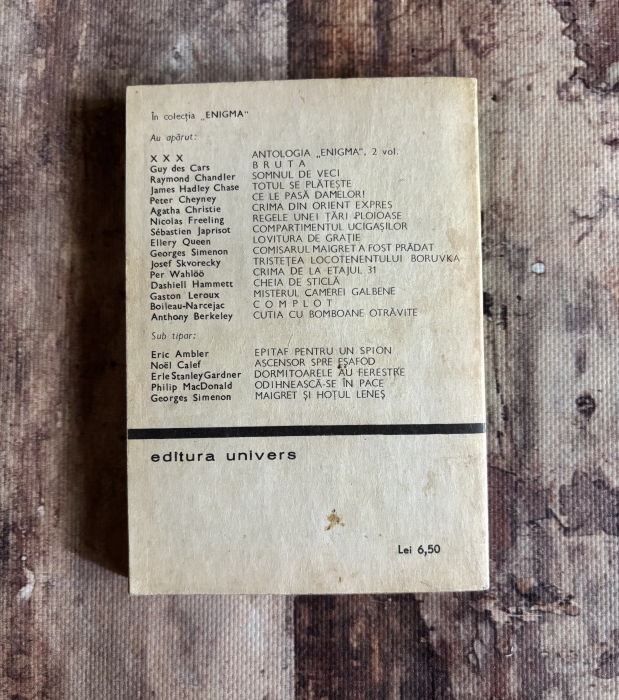 În colecția „ENIGMA“
Au apărut:
X X X ANTOLOGIA „ENIGMA“, 2 vol.
Guy des Cars B R U T A
Raymond Chandler SOMNUL DE VECI
James Hadley Chase TOTUL SE PLĂTEȘTE
Peter Cheyney CE LE PASĂ DAMELOR!
Agatha Christie CRIMA DIN ORIENT EXPRES
Nicolas Freeling REGELE UNEI ȚĂRI PLOIOASE
Sébastien Japrisot COMPARTIMENTUL UCIGAȘILOR
Ellery Queen LOVITURA DE GRAȚIE
Georges Simenon COMISARUL MAIGRET A FOST PRĂDAT
Josef Skvorecky TRISTEȚEA LOCOTENENTULUI BORUVKA
Per Wahlöö CRIMA DE LA ETAJUL 31
Dashiell Hammett CHEIA DE STICLĂ
Gaston Leroux MISTERUL CAMEREI GALBENE
Boileau-Narcejac C O M P L O T
Anthony Berkeley CUTIA CU BOMBOANE OTRĂVITE
Sub tipar:
Eric Ambler EPITAF PENTRU UN SPION
Noël Calef ASCENSOR SPRE EȘAFOD
Erle Stanley Gardner DORMITOARELE AU FERESTRE
Philip MacDonald ODIHNEASCĂ-SE ÎN PACE
Georges Simenon MAIGRET ȘI HOȚUL LENEȘ
editura univers
Lei 6,50